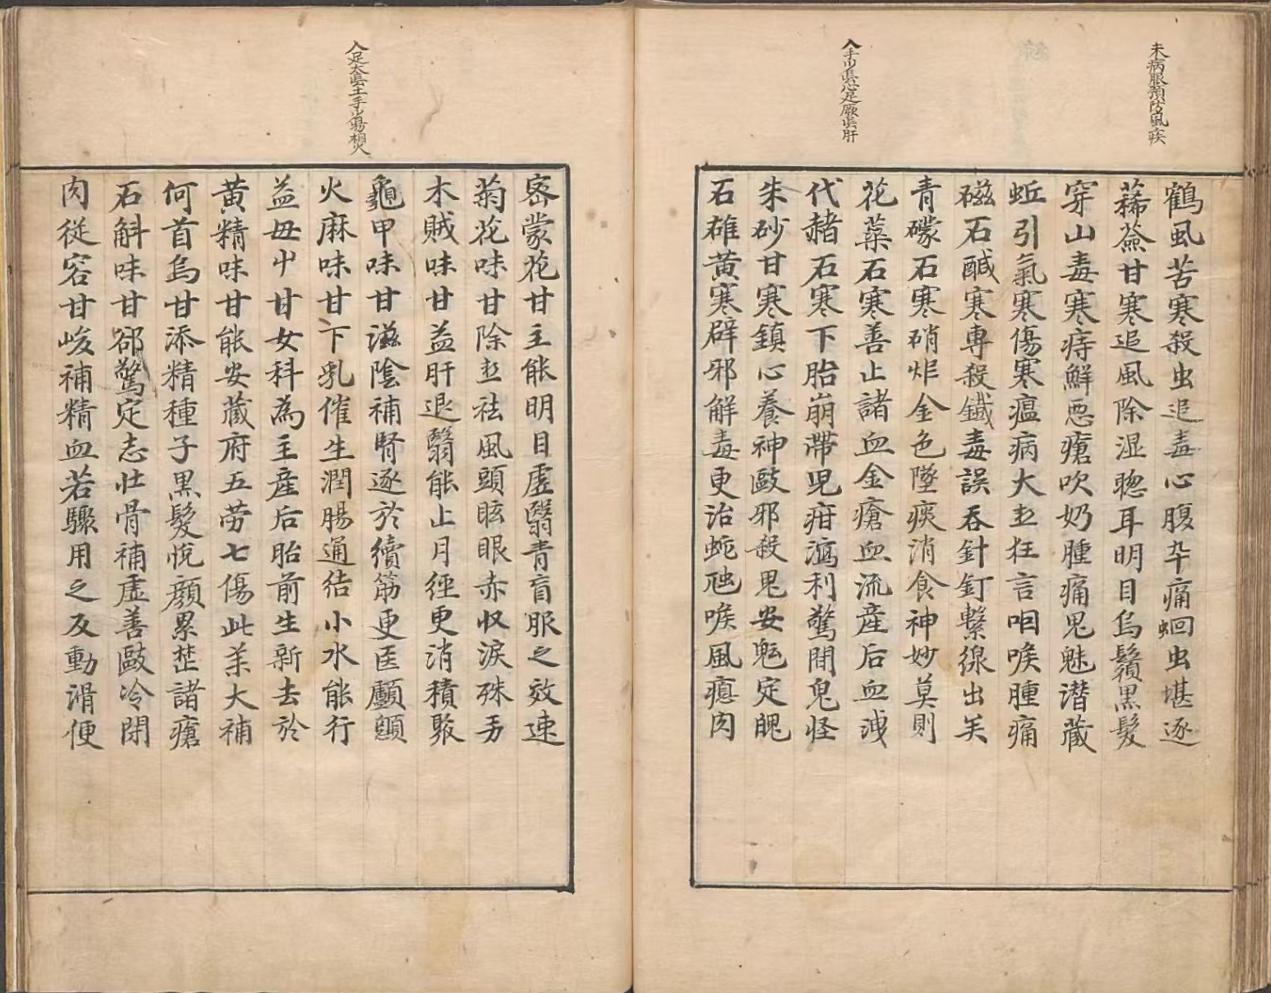 未病服預防風疾
鶴虱苦寒殺虫追毒心腹卒痛蛔虫堪逐
豨薟甘寒追風除湿聰耳明目烏鬚黒髮
穿山毒寒痔鮮悪瘡吹奶腫痛鬼魅潜蔵
蚯引氣寒傷寒瘟病大狂言咽喉腫痛
磁石醎寒專殺鐵毒誤吞針釘繫線出矣
青礞石寒硝炸金色墜痰消食神妙莫則
花蘂石寒善止諸血金瘡血流産后血洩
入手少心足厥肝
代赭石寒下胎崩帶児疳瀉利驚閒鬼怪
朱砂甘寒鎮心養神敺邪殺鬼安魂定魄
石雄黄寒辟邪解毒更治蛇虺喉風瘜肉
密蒙花甘主能明目虚翳青盲服之效速
菊花味甘除祛風頭眩眼赤収淚殊
木賊味甘益肝退翳能止月經更消積聚
入足太手
龜甲味甘滋陰補腎逐於續筋更医顱顖
火麻味甘下乳催生潤腸通结小水能行
益母中甘女科為主産后胎前生新去於
黄精味甘能安蔵府五劳七傷此藥大補
何首烏甘添精種子黒髮悅顔累諸瘡
石斛味甘郤驚定志壮骨補虚善敺冷閉
肉従容甘峻補精血若驟用之反動滑便